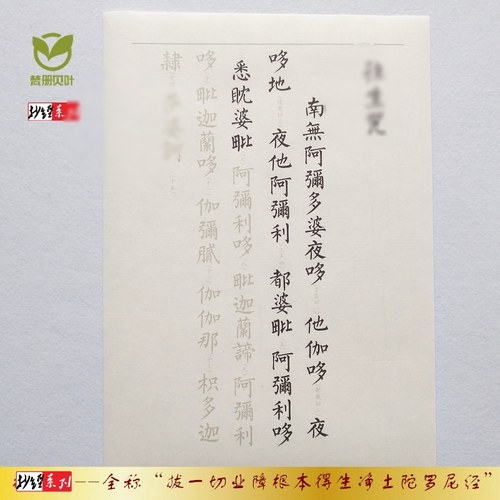 梵册贝叶
抄经系列
往生咒
南無阿彌多婆夜哆 他伽哆 夜
哆地 夜他阿彌利 都婆毗 阿彌利哆
悉眈婆毗 阿彌利哆 毗迦蘭諦 阿彌利
哆 毗迦蘭哆 伽彌膩 伽伽那 枳多迦
隸
抄经系列——全称“拔一切业障根本得生净土陀罗尼经”